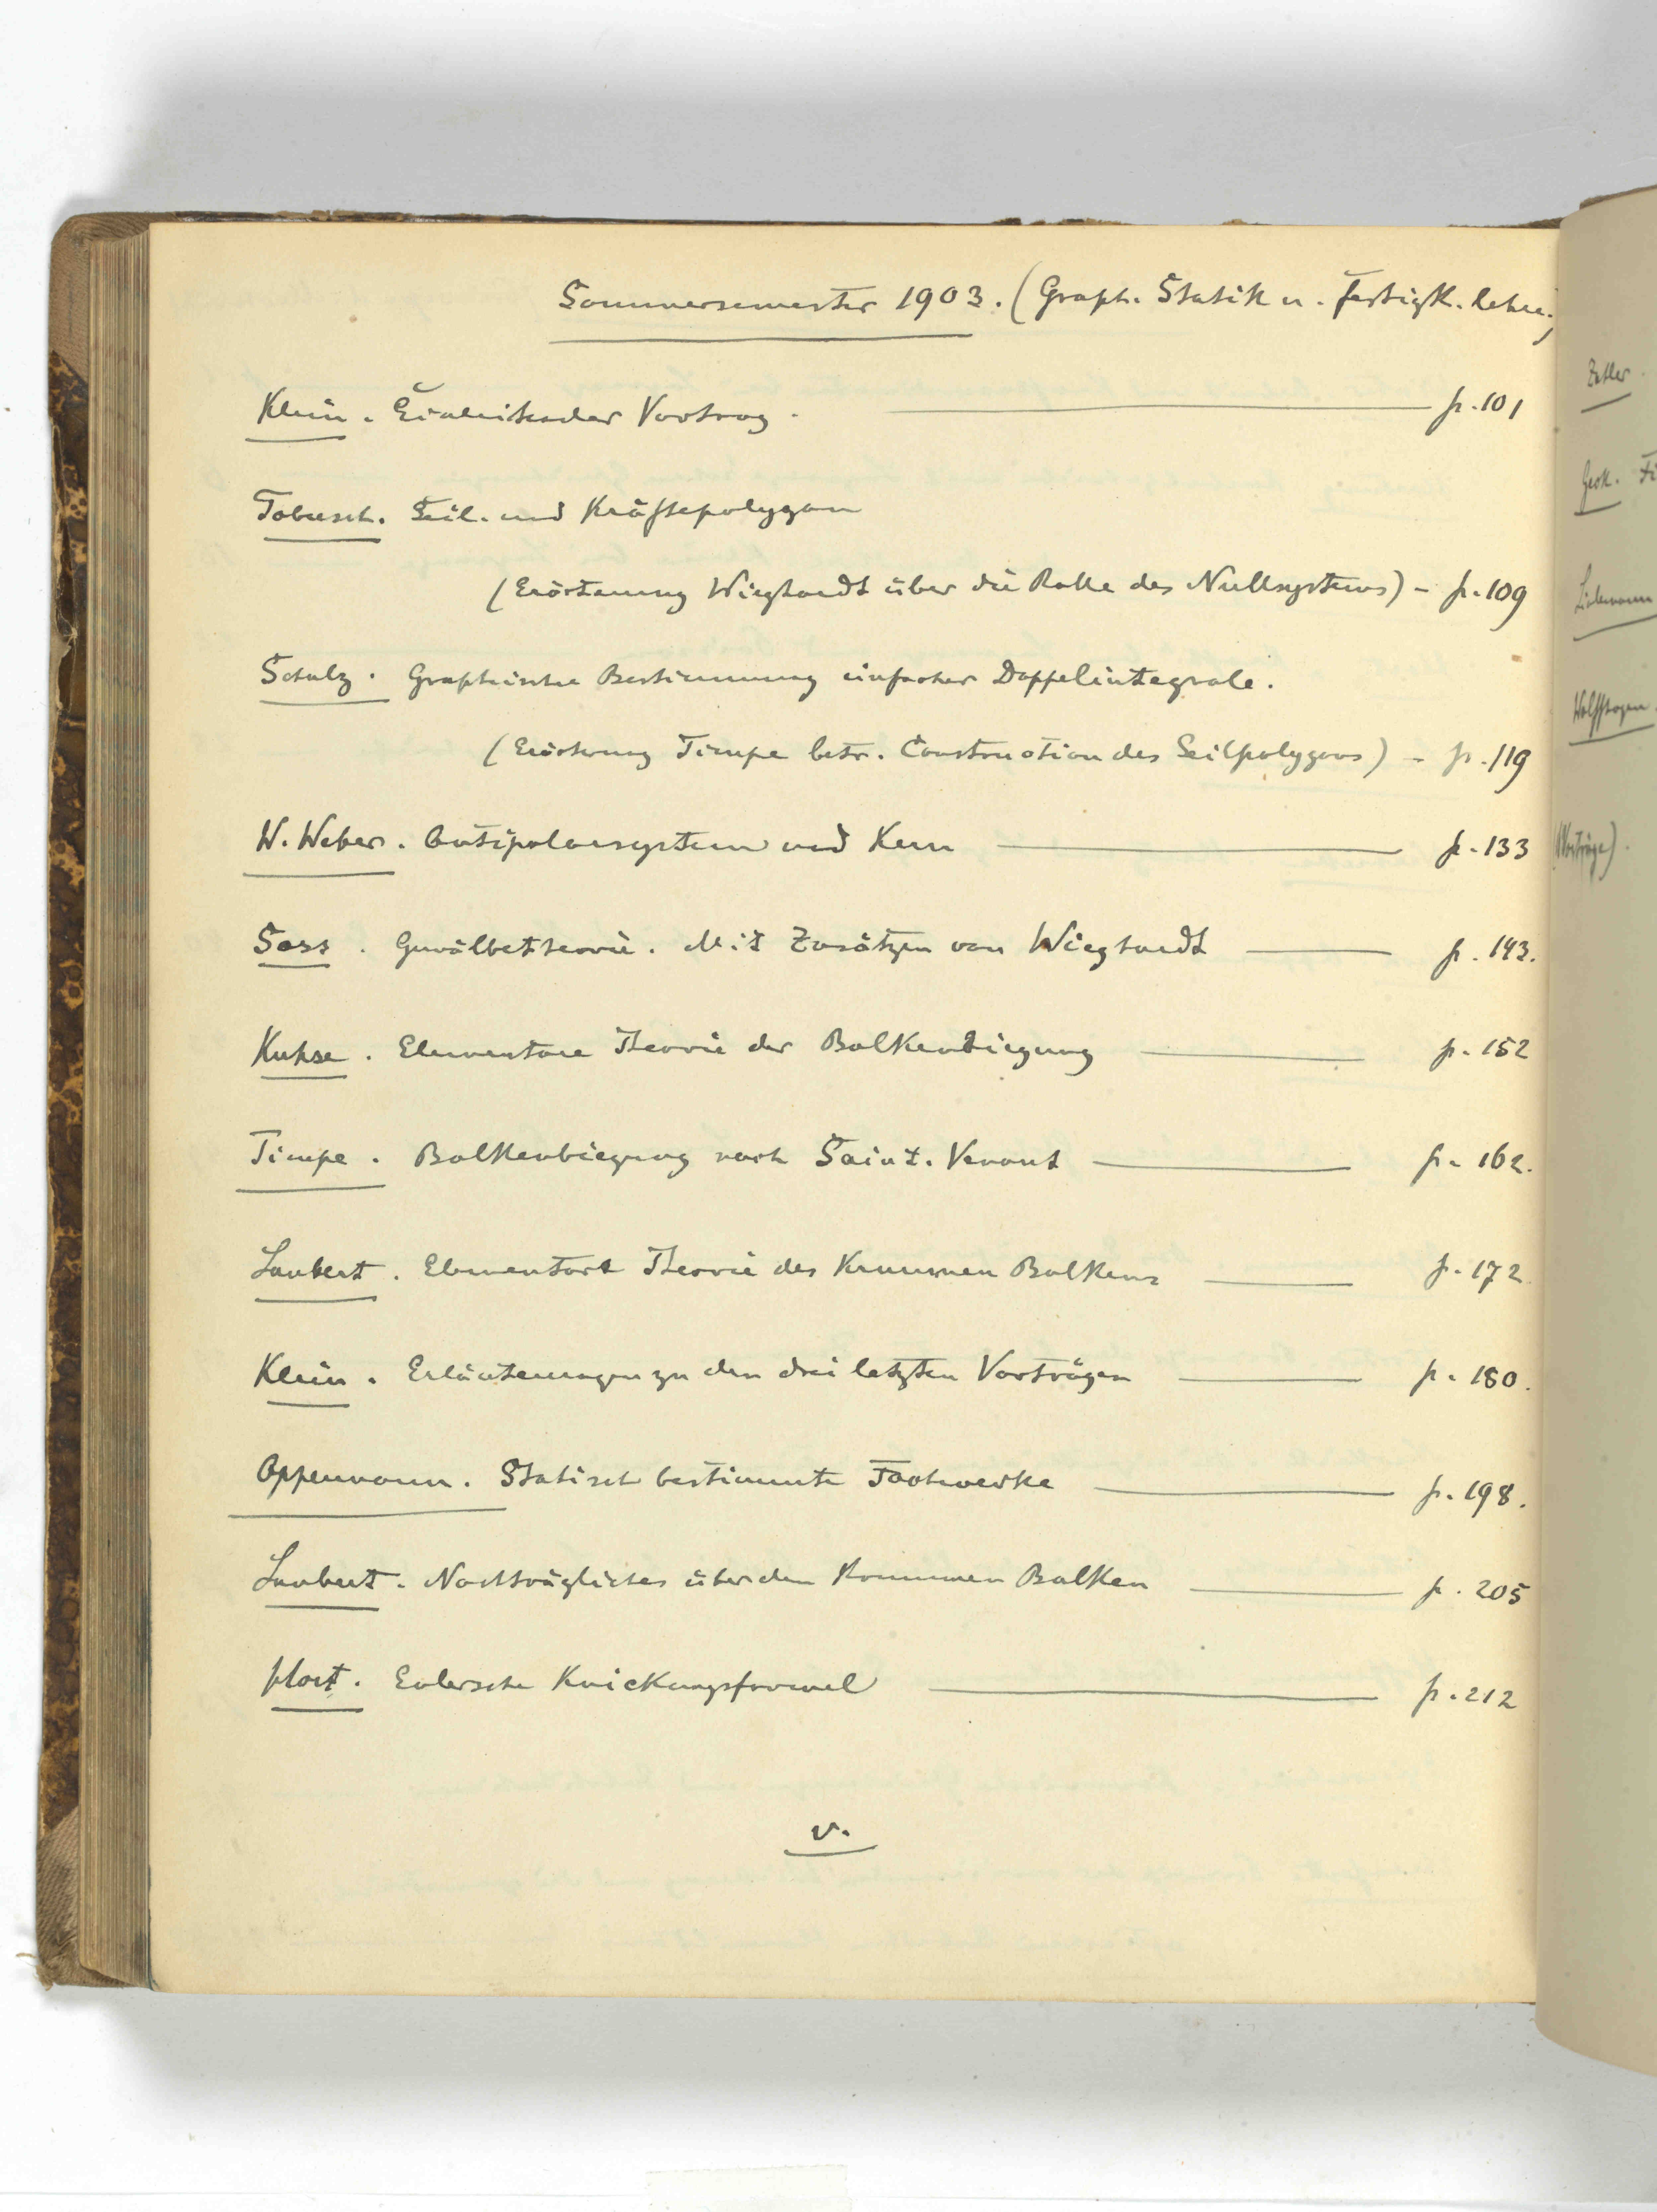 Sommersemester 1903. (Graph. Statik u. Festigk. lehre.)
Klein. Einleitender Vortrag. p. 101
Tobusch. Seil- und Kräftepolygon
(Erörterung Wieghardt über die Rolle des Nullsystems) - p. 109
Schulz. Graphische Bestimmung einfacher Doppelintegrale.
(Erörterung Timpe betr. Construction des Seilpolygons) - p. 119
W. Weber. Antipolarsystem und Kern p. 133
Gewölbetheorie. Mit Zusätzen von Wieghardt p. 143.
Kuhse. Elementare Theorie der Balkenbiegung p. 152
Timpe. Balkenbiegung nach Saint-Venant p. 162.
Laubert. Elementare Theorie des krummen Balkens p. 172
Klein. Erläuterungen zu den drei letzten Vorträgen p. 180.
Oppermann. Statisch bestimmte Fachwerke p. 198.
Laubert. Nachträgliches über den krummen Balken p. 205
Hort. Eulersche Knickungsformel p. 212
v.
Liebmann
(Vorträge).